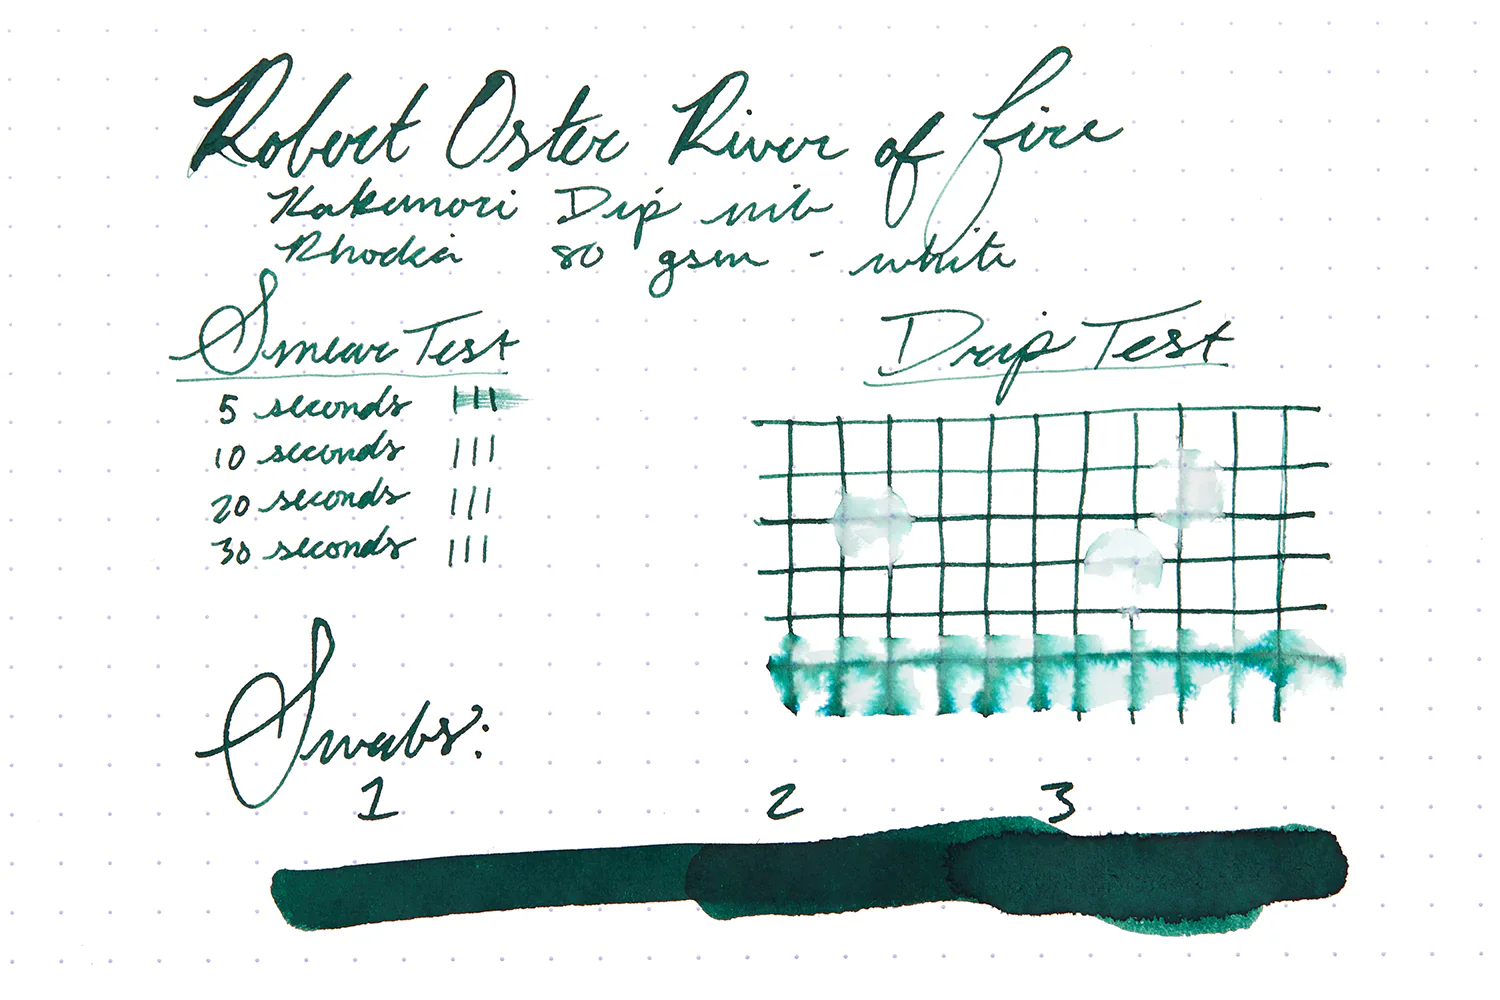 Robert Oster River of Fire
Kakimori Dip nib
Rhodia 80 gsm - white
Smear Test
5 seconds
10 seconds
20 seconds
30 seconds
Drip Test
Swabs:
1 2 3